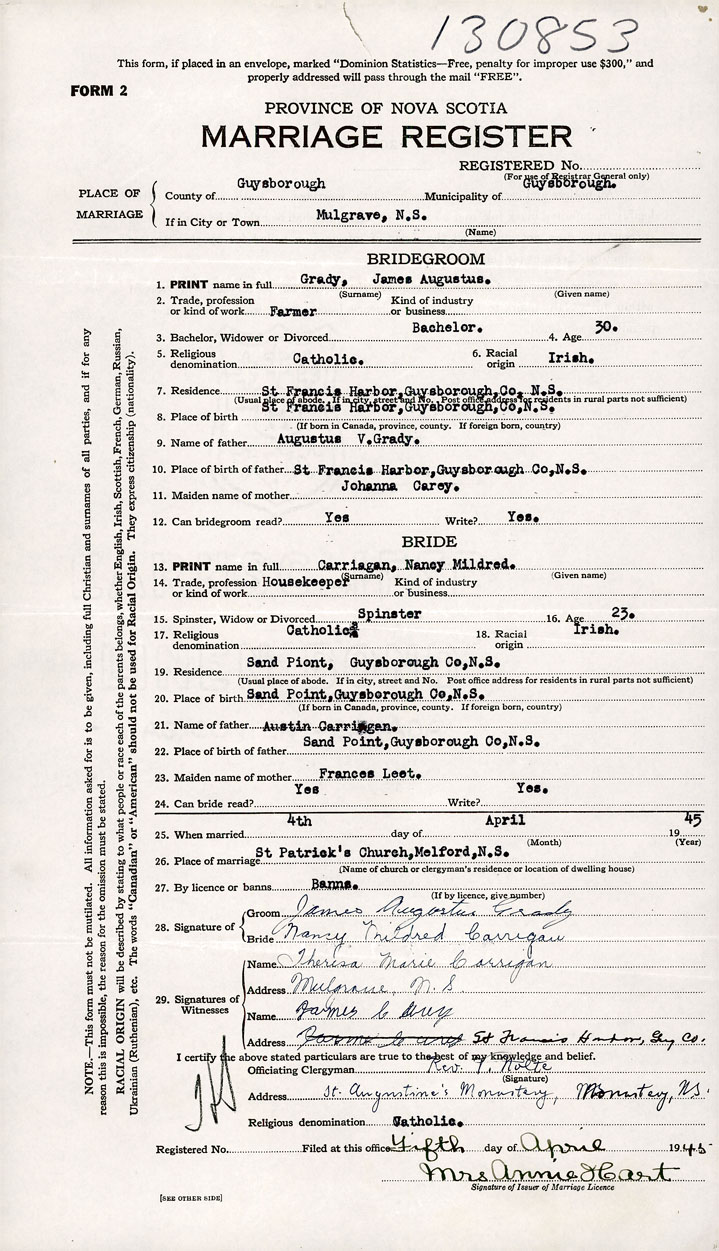 130853
This form, if placed in an envelope, marked "Dominion Statistics—Free, penalty for improper use $300," and
properly addressed will pass through the mail "FREE".
FORM 2
PROVINCE OF NOVA SCOTIA
MARRIAGE REGISTER
REGISTERED No.
(For use of Registrar General only)
PLACE OF MARRIAGE
County of Guysborough Municipality of Guysborough.
If in City or Town Mulgrave, N.S.
(Name)
BRIDEGROOM
1. PRINT name in full Grady, James Augustus.
(Surname) (Given name)
2. Trade, profession or kind of work Farmer Kind of industry or business
3. Bachelor, Widower or Divorced Bachelor. 4. Age 30.
5. Religious denomination Catholic. 6. Racial origin Irish.
7. Residence St Francis Harbor,Guysborough,Co, N.S.
(Usual place of abode. If in city, street and No. Post office address for residents in rural parts not sufficient)
8. Place of birth St Francis Harbor,Guysborough,Co,N.S.
(If born in Canada, province, county. If foreign born, country)
9. Name of father Augustus V.Grady.
10. Place of birth of father St Francis Harbor,Guysborough Co,N.S.
11. Maiden name of mother Johanna Carey.
12. Can bridegroom read? Yes Write? Yes.
BRIDE
13. PRINT name in full Carriagan, Nancy Mildred.
(Surname) (Given name)
14. Trade, profession or kind of work Housekeeper Kind of industry or business
15. Spinster, Widow or Divorced Spinster 16. Age 23.
17. Religious denomination Catholic 18. Racial origin Irish.
19. Residence Sand Piont, Guysborough Co,N.S.
(Usual place of abode. If in city, street and No. Post office address for residents in rural parts not sufficient)
20. Place of birth Sand Point,Guysborough Co,N.S.
(If born in Canada, province, county. If foreign born, country)
21. Name of father Austin Carrigan.
22. Place of birth of father Sand Point,Guysborough Co,N.S.
23. Maiden name of mother Frances Leet.
24. Can bride read? Yes Write? Yes.
25. When married 4th day of April 1945
(Month) (Year)
26. Place of marriage St Patrick's Church,Melford,N.S.
(Name of church or clergyman's residence or location of dwelling house)
27. By licence or banns Banns.
(If by licence, give number)
28. Signature of
Groom James Augustus Grady
Bride Nancy Mildred Carrigan
29. Signatures of Witnesses
Name Theresa Marie Carrigan
Address Mulgrave, N.S.
Name James C
Address St Francis Harbor, Guy Co.
I certify the above stated particulars are true to the best of my knowledge and belief.
Officiating Clergyman Rev. P. Nolte
(Signature)
Address St. Augustine's Monastery, Monastery, N.S.
Religious denomination Catholic.
Registered No. Filed at this office Fifth day of April 1945
Mrs Annie Hart
Signature of Issuer of Marriage Licence
[SEE OTHER SIDE]
NOTE.—This form must not be mutilated. All information asked for is to be given, including full Christian and surnames of all parties, and if for any
reason this is impossible, the reason for the omission must be stated.
RACIAL ORIGIN will be described by stating to what people or race each of the parents belongs, whether English, Irish, Scottish, French, German, Russian,
Ukrainian (Ruthenian), etc. The words "Canadian" or "American" should not be used for Racial Origin. They express citizenship (nationality).